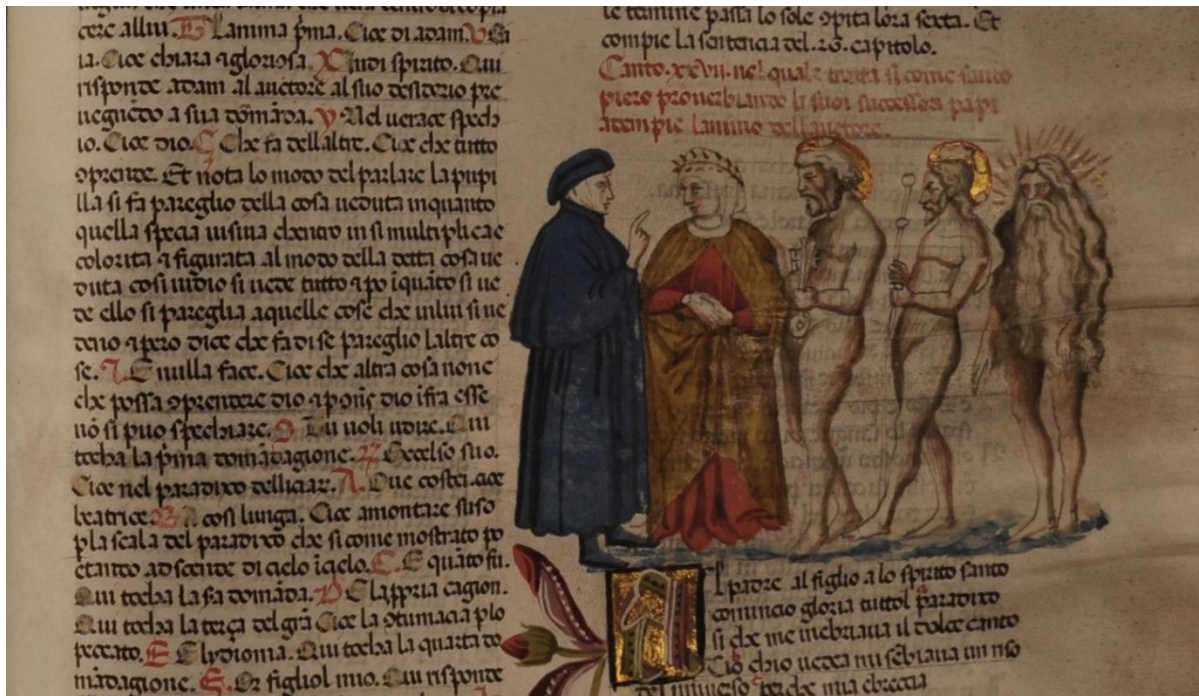 cere allui. B L anima p̃ma. Cioe di adam. V Gi
ia. Cioe chiara ⁊ gloriosa. X Indi spirito. Qui
risponde adam al auctore al suo desiderio pre
uegnẽdo a sua dõmãda. y Nel uerace spech
io. Cioe dio. Che fa dellaltre. Cioe che tutto
ꝯprende. Et nota lo modo del parlare la pupi
lla si fa pareglio della cosa ueduta inquanto
quella specia uisiua dentro in si multiplicae
colorita ⁊ figurata al modo della detta cosa ue
duta cosi iudio si uede tutto ⁊ po ĩquãto si ue
de ello si pareglia a quelle cose che inlui si ue
deno ⁊ pero dice che fa di se pareglio laltre co
se. E nulla face. Cioe che altra cosa none
che possa ꝯprendere dio
nõ si puo spechiare. Tu uoli udire. Qui
tocha la p̃ma domãdagione. Excelso suo.
Cioe nel paradixo delliciar. A. Due costei. cioe
beatrice. B A cosi lunga. Cioe amontare suso
p la scala del paradixo che si come mostrato po
etanto adscende di cielo ĩ cielo. C. E quãto fu.
Qui tocha la domãda. D E la ppria cagion.
Qui tocha la terça del grã Cioe la ꝯtumacia p lo
peccato. E E lydioma. Qui tocha la quarta do
mãdagione. Or figliol mio. Qui risponde
le temine passa lo sole opita lora sexta. Et
compie la sentencia del .26. capitolo.
Canto .xxvii. nel quale tratta si come santo
piero prouerbiando li suoi successori papi
adempie lanimo dellauctore.
Al padre al figlio a lo spirito santo
comincio gloria tuttol paradixo
si che me inebriaua il dolce canto
Cio chio uedea mi sẽbiaua un riso
del uniuerso per che mia ebreccia